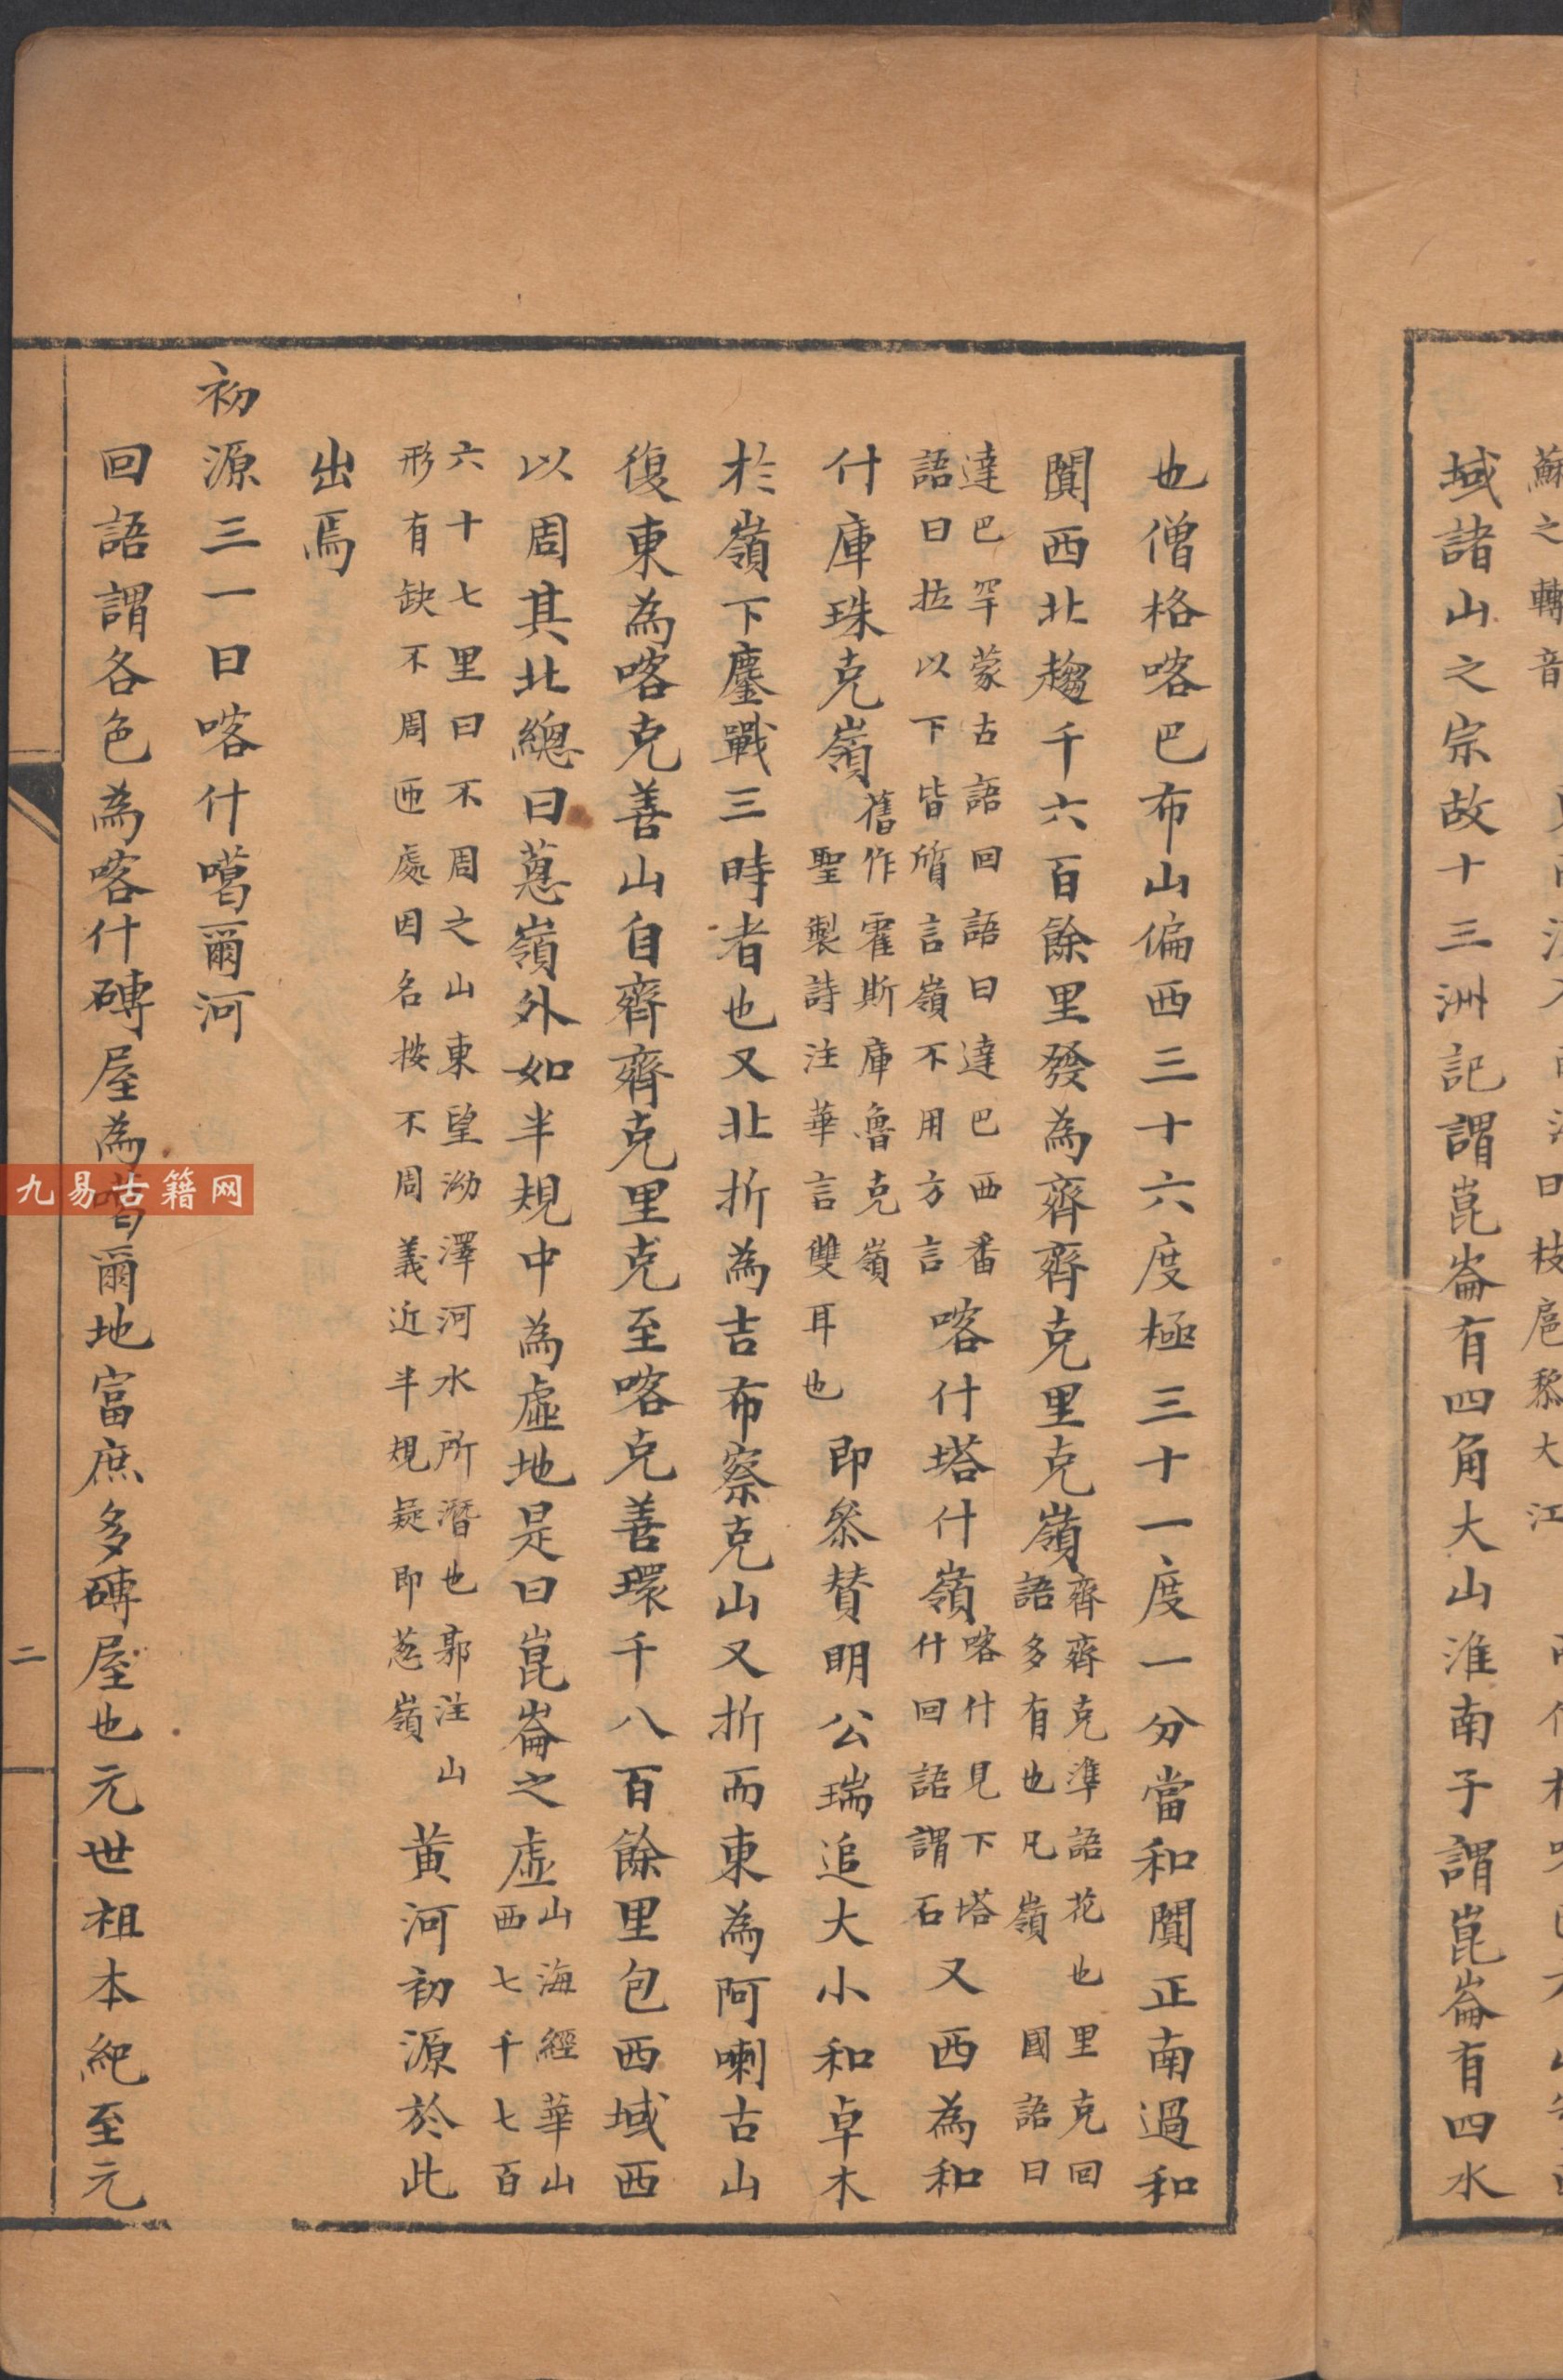 蘇之轉音
曰枝扈黎大江
域諸山之宗故十三洲記謂崑崙有四角大山淮南子謂崑崙有四水
也僧格喀巴布山偏西三十六度極三十一度一分當和闐正南過和
闐西北趨千六百餘里發為齊齊克里克嶺齊齊克準語花也里克回語多有也凡嶺國語曰
達巴罕蒙古語回語曰達巴西番語曰拉以下皆質言嶺不用方言喀什塔什嶺喀什見下塔什回語謂石又西為和
什庫珠克嶺舊作霍斯庫魯克嶺聖製詩注華言雙耳也即叅賛明公瑞追大小和卓木
於嶺下鏖戰三時者也又北折為吉布察克山又折而東為阿喇古山
復東為喀克善山自齊齊克里克至喀克善環千八百餘里包西域西
以周其北總曰蔥嶺外如半規中為虛地是曰崑崙之虛山海經華山西七千七百
六十七里曰不周之山東望泑澤河水所潛也郭注山形有缺不周匝處因名按不周義近半規疑即蔥嶺黃河初源於此
出焉
初源三一曰喀什噶爾河
回語謂各色為喀什磚屋為噶爾地富庶多磚屋也元世祖本紀至元
二
九易古籍网